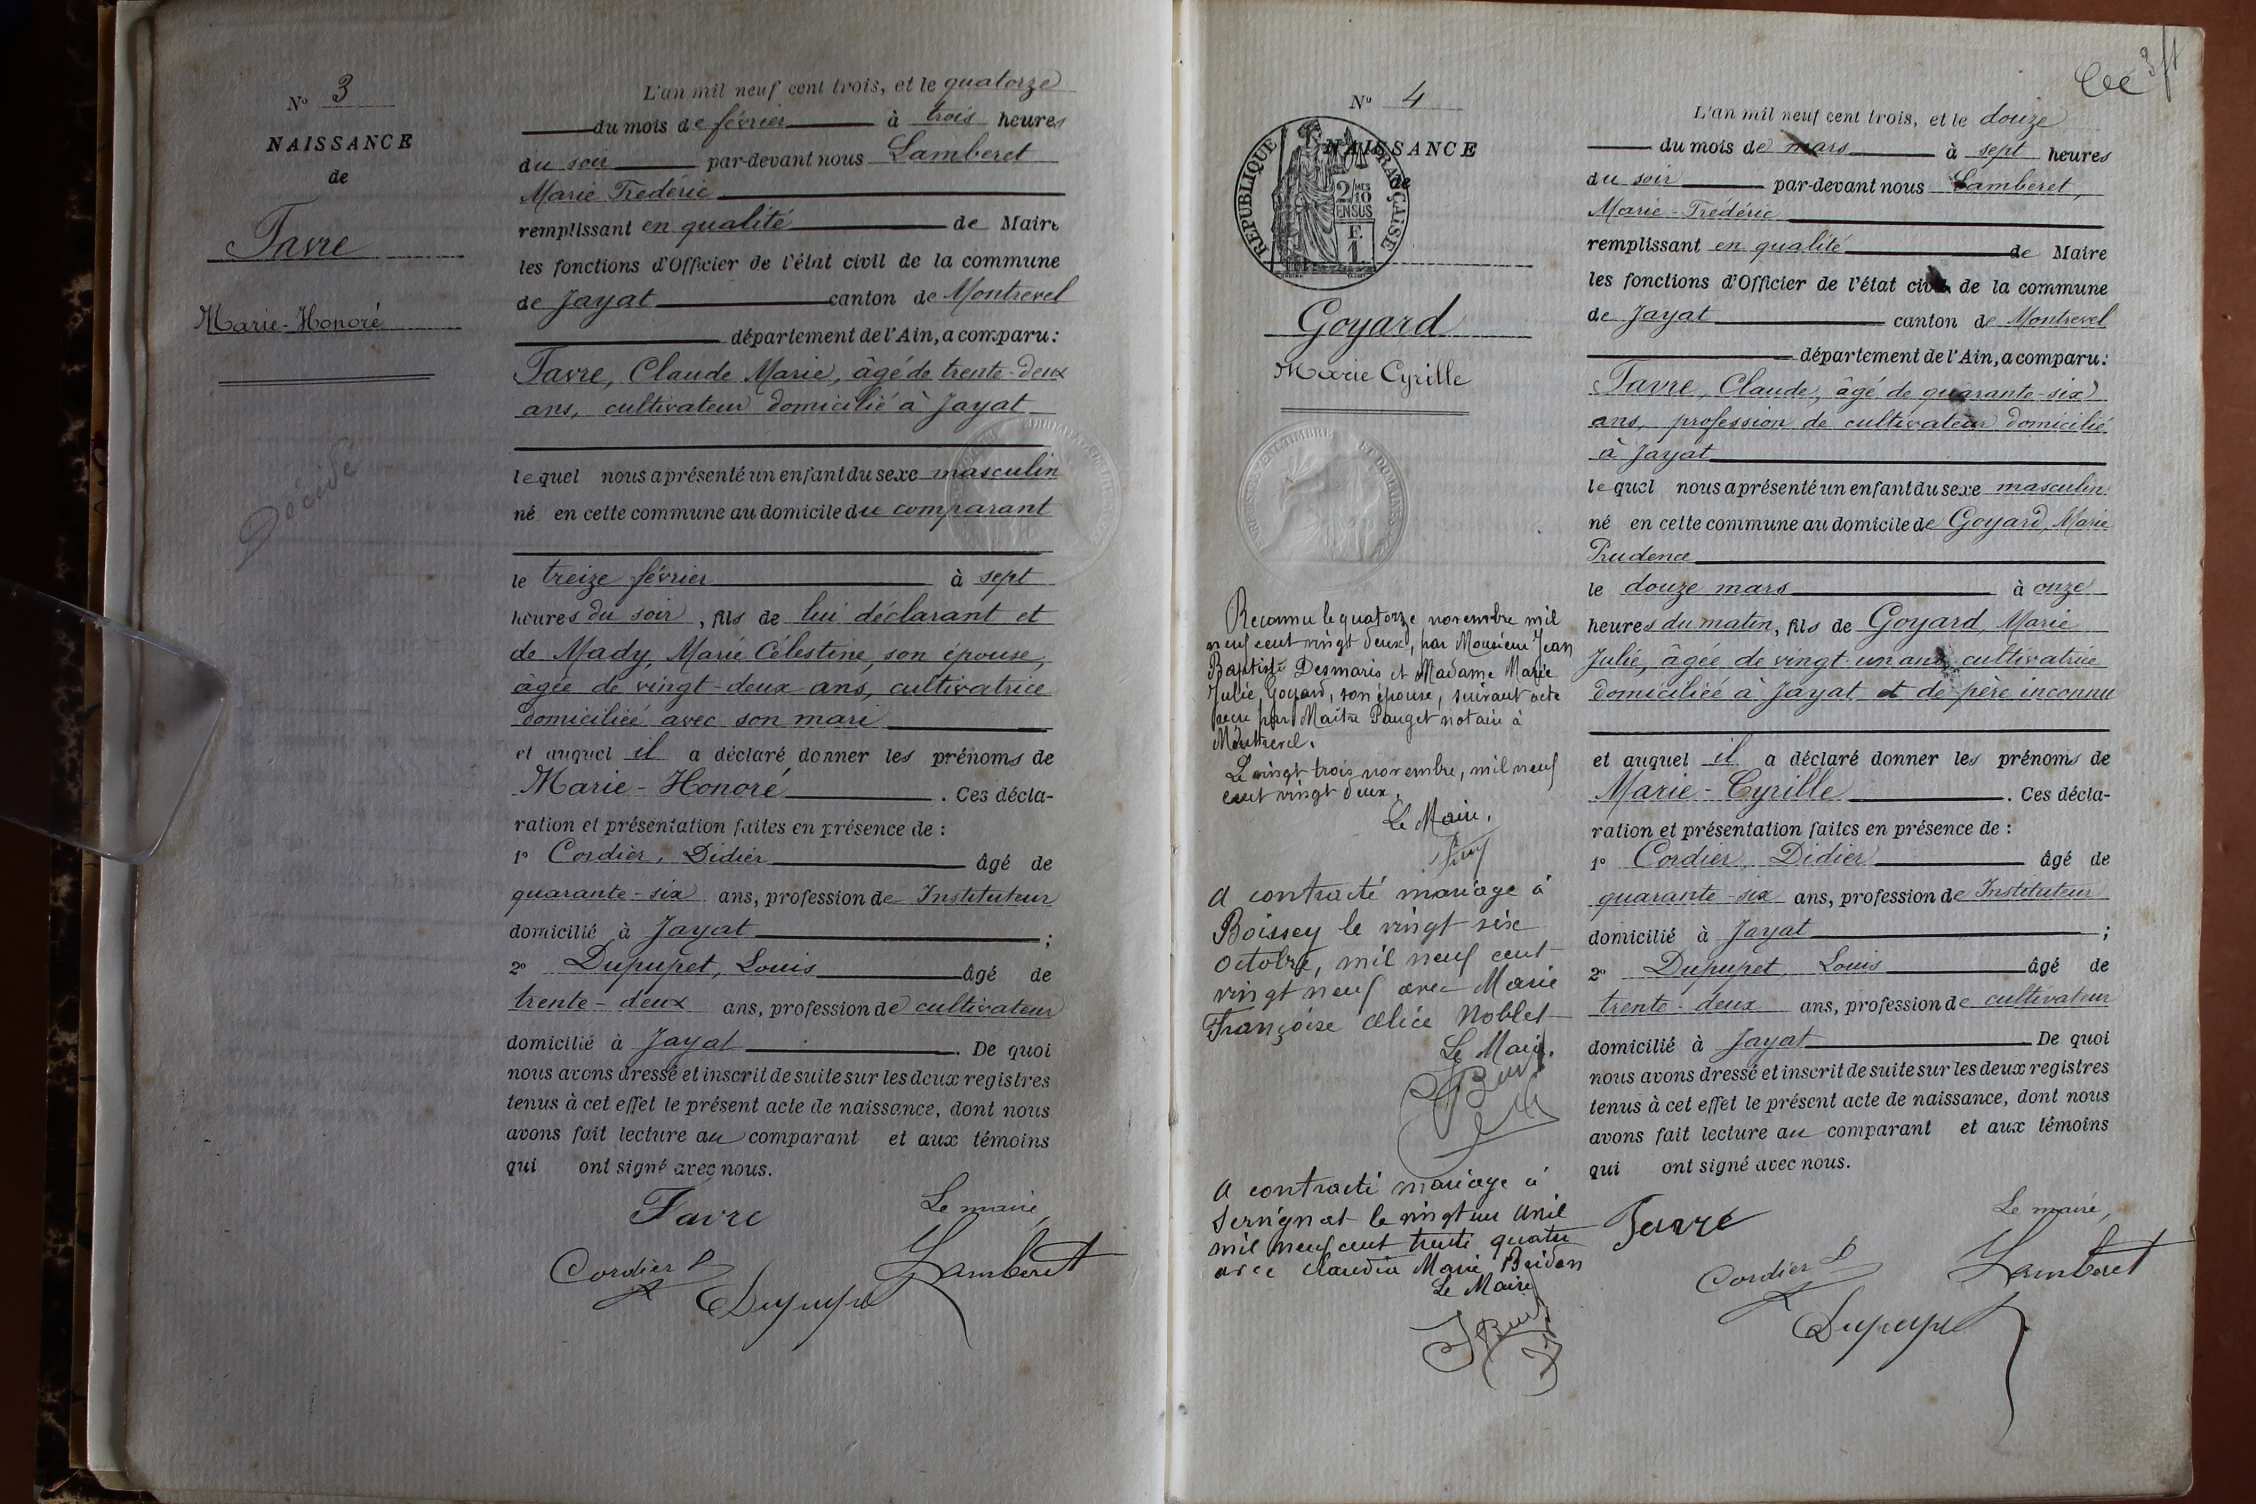 N° 3
NAISSANCE
de
Favre
Marie-Honoré
Décédé
L'an mil neuf cent trois, et le quatorze
du mois de février à trois heures
du soir par-devant nous Lamberet
Marie Frédéric
remplissant en qualité de Maire
les fonctions d'Officier de l'état civil de la commune
de Jayat canton de Montrevel
département de l'Ain, a comparu:
Favre, Claude Marie, âgé de trente-deux
ans, cultivateur domicilié à Jayat
lequel nous a présenté un enfant du sexe masculin
né en cette commune au domicile du comparant
le treize février à sept
heures du soir, fils de lui déclarant et
de Mady, Marie Célestine, son épouse,
âgée de vingt-deux ans, cultivatrice
domiciliée avec son mari
et auquel il a déclaré donner les prénoms de
Marie-Honoré. Ces décla-
ration et présentation faites en présence de:
1° Cordier, Didier âgé de
quarante-six ans, profession de Instituteur
domicilié à Jayat;
2° Dupupet, Louis âgé de
trente-deux ans, profession de cultivateur
domicilié à Jayat. De quoi
nous avons dressé et inscrit de suite sur les deux registres
tenus à cet effet le présent acte de naissance, dont nous
avons fait lecture au comparant et aux témoins
qui ont signé avec nous.
Favre Le maire,
Cordier D Lamberet
Dupupet
N° 4
NAISSANCE
de
RÉPUBLIQUE FRANÇAISE
2/10 MES
EN SUS
F.
1
Goyard
Marie Cyrille
Reconnu le quatorze novembre mil
neuf cent vingt deux, par Monsieur Jean
Baptiste Desmaris et Madame Marie
Julie Goyard, son épouse, suivant acte
reçu par Maître Pauget notaire à
Montrevel.
Le vingt trois novembre, mil neuf
cent vingt deux.
Le Maire.
A contracté mariage à
Boissey le vingt six
octobre, mil neuf cent
vingt neuf avec Marie
Françoise Alice Noblet
Le Maire.
A contracté mariage à
Servignat le vingt un avril
mil neuf cent trente quatre
avec Claudia Marie Buidon
Le Maire
L'an mil neuf cent trois, et le douze
du mois de mars à sept heures
du soir par-devant nous Lamberet,
Marie-Frédéric
remplissant en qualité de Maire
les fonctions d'Officier de l'état civil de la commune
de Jayat canton de Montrevel
département de l'Ain, a comparu:
Favre, Claude, âgé de quarante-six
ans, profession de cultivateur domicilié
à Jayat
lequel nous a présenté un enfant du sexe masculin
né en cette commune au domicile de Goyard, Marie
Prudence
le douze mars à onze
heures du matin, fils de Goyard, Marie
Julie, âgée de vingt-un ans, cultivatrice
domiciliée à Jayat et de père inconnu
et auquel il a déclaré donner les prénoms de
Marie-Cyrille. Ces décla-
ration et présentation faites en présence de:
1° Cordier, Didier âgé de
quarante-six ans, profession de Instituteur
domicilié à Jayat;
2° Dupupet, Louis âgé de
trente-deux ans, profession de cultivateur
domicilié à Jayat De quoi
nous avons dressé et inscrit de suite sur les deux registres
tenus à cet effet le présent acte de naissance, dont nous
avons fait lecture au comparant et aux témoins
qui ont signé avec nous.
Favre Le maire,
Cordier D Lamberet
Dupupet